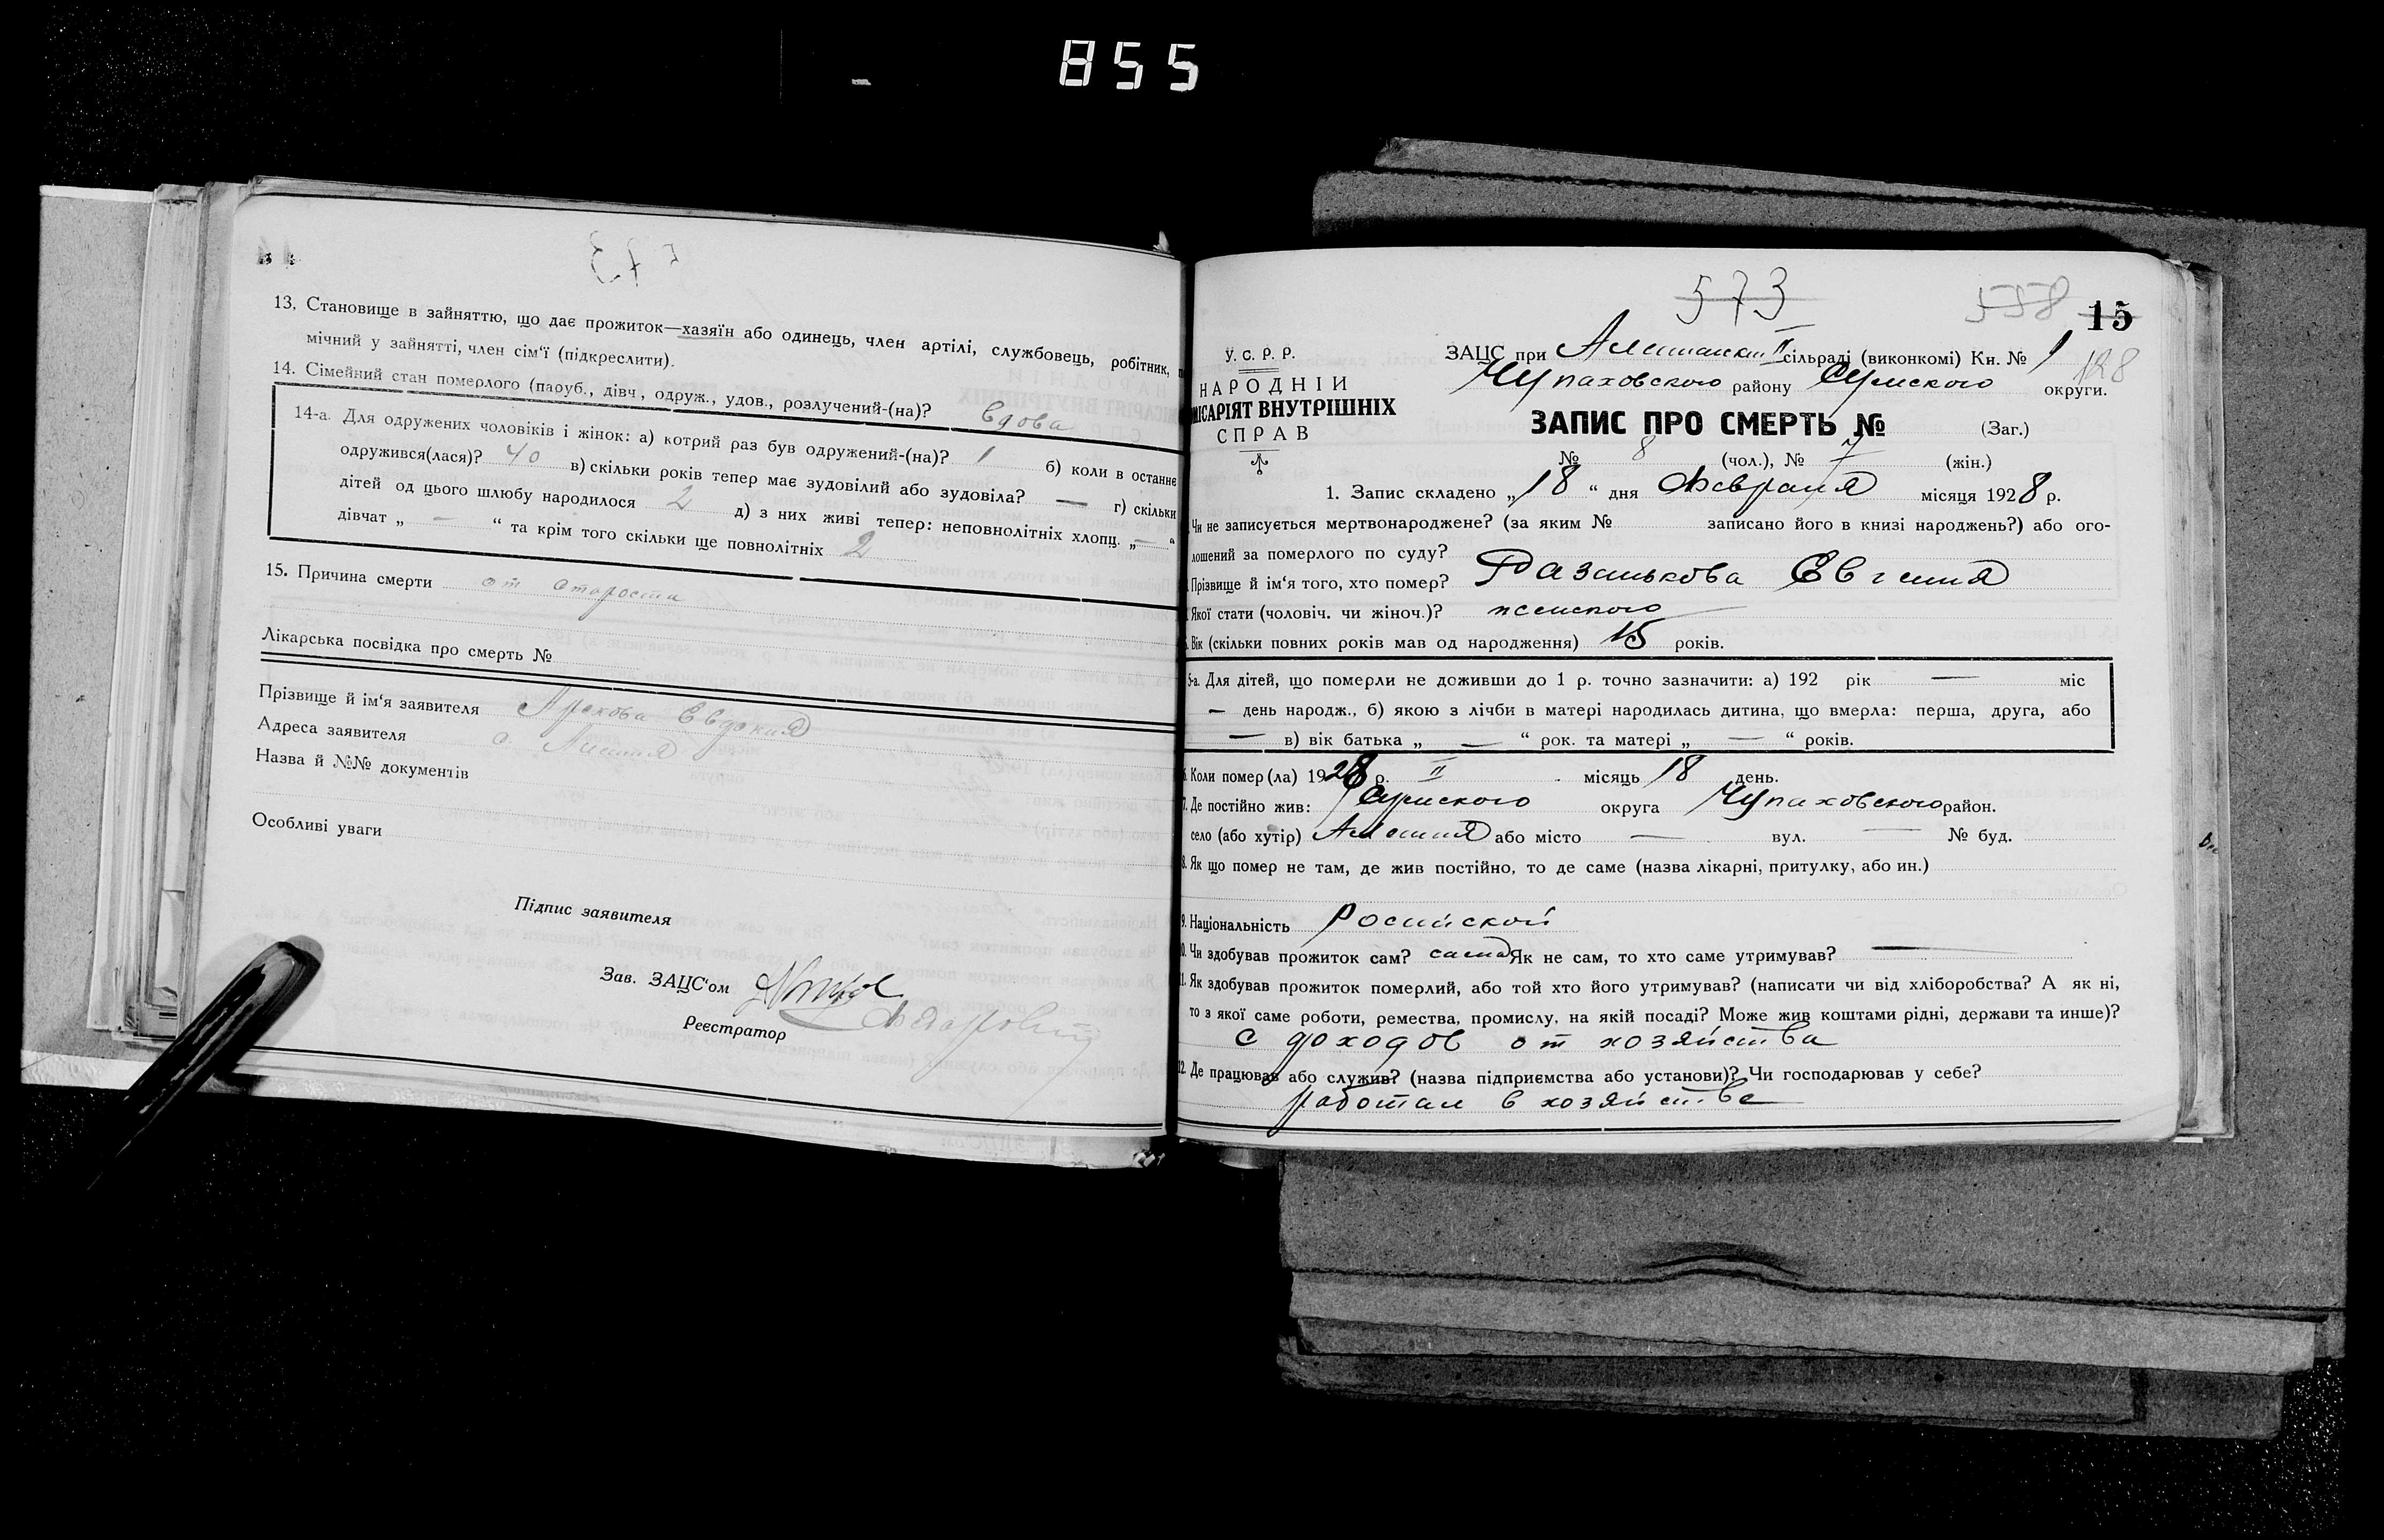 855
13. Становище в зайняттю, що дає прожиток—хазяїн або одинець, член артілі, службовець, робітник,
мічний у зайнятті, член сім'ї (підкреслити).
14. Сімейний стан померлого (паруб., дівч., одруж., удов., розлучений-(на)? вдова
14-а. Для одружених чоловіків і жінок: а) котрий раз був одружений-(на)? 1 б) коли в останнє
одружився(лася)? 40 в) скільки років тепер має зудовілий або зудовіла? — г) скільки
дітей од цього шлюбу народилося 2 д) з них живі тепер: неповнолітніх хлопц. „—“
дівчат „ — “ та крім того скільки ще повнолітніх 2
15. Причина смерти от старости
Лікарська посвідка про смерть №
Прізвище й ім'я заявителя Евдокия
Адреса заявителя с.
Назва й №№ документів
Особливі уваги
Підпис заявителя
Зав. ЗАЦС'ом
Реєстратор
573
558 15
128
У. С. Р. Р.
НАРОДНІЙ
МІСАРІЯТ ВНУТРІШНІХ
СПРАВ
ЗАЦС при II сільраді (виконкомі) Кн. № 1
Чупаховского району Сумского округи.
ЗАПИС ПРО СМЕРТЬ № (Заг.)
№ 8 (чол.), № 7 (жін.)
1. Запис складено „18“ дня Февраля місяця 1928 р.
Чи не записується мертвонароджене? (за яким № записано його в книзі народжень?) або ого-
лошений за померлого по суду?
Прізвище й ім'я того, хто помер? Евгения
Якої стати (чоловіч. чи жіноч.)? женского
Вік (скільки повних років мав од народження) 15 років.
5-а. Для дітей, що померли не доживши до 1 р. точно зазначити: а) 192 рік — міс
— день народж., б) якою з лічби в матері народилась дитина, що вмерла: перша, друга, або
— в) вік батька „ — “ рок. та матері „ — “ років.
6. Коли помер(ла) 1928 р. II місяць 18 день.
7. Де постійно жив: Сумского округа Чупаховского район.
село (або хутір) або місто — вул. — № буд.
8. Як що помер не там, де жив постійно, то де саме (назва лікарні, притулку, або ин.)
9. Національність Росийской
10. Чи здобував прожиток сам? сама Як не сам, то хто саме утримував? —
11. Як здобував прожиток померлий, або той хто його утримував? (написати чи від хліборобства? А як ні,
то з якої саме роботи, ремества, промислу, на якій посаді? Може жив коштами рідні, держави та инше)?
с доходов от хозяйства
12. Де працював або служив? (назва підприємства або установи)? Чи господарював у себе?
работал в хозяйстве